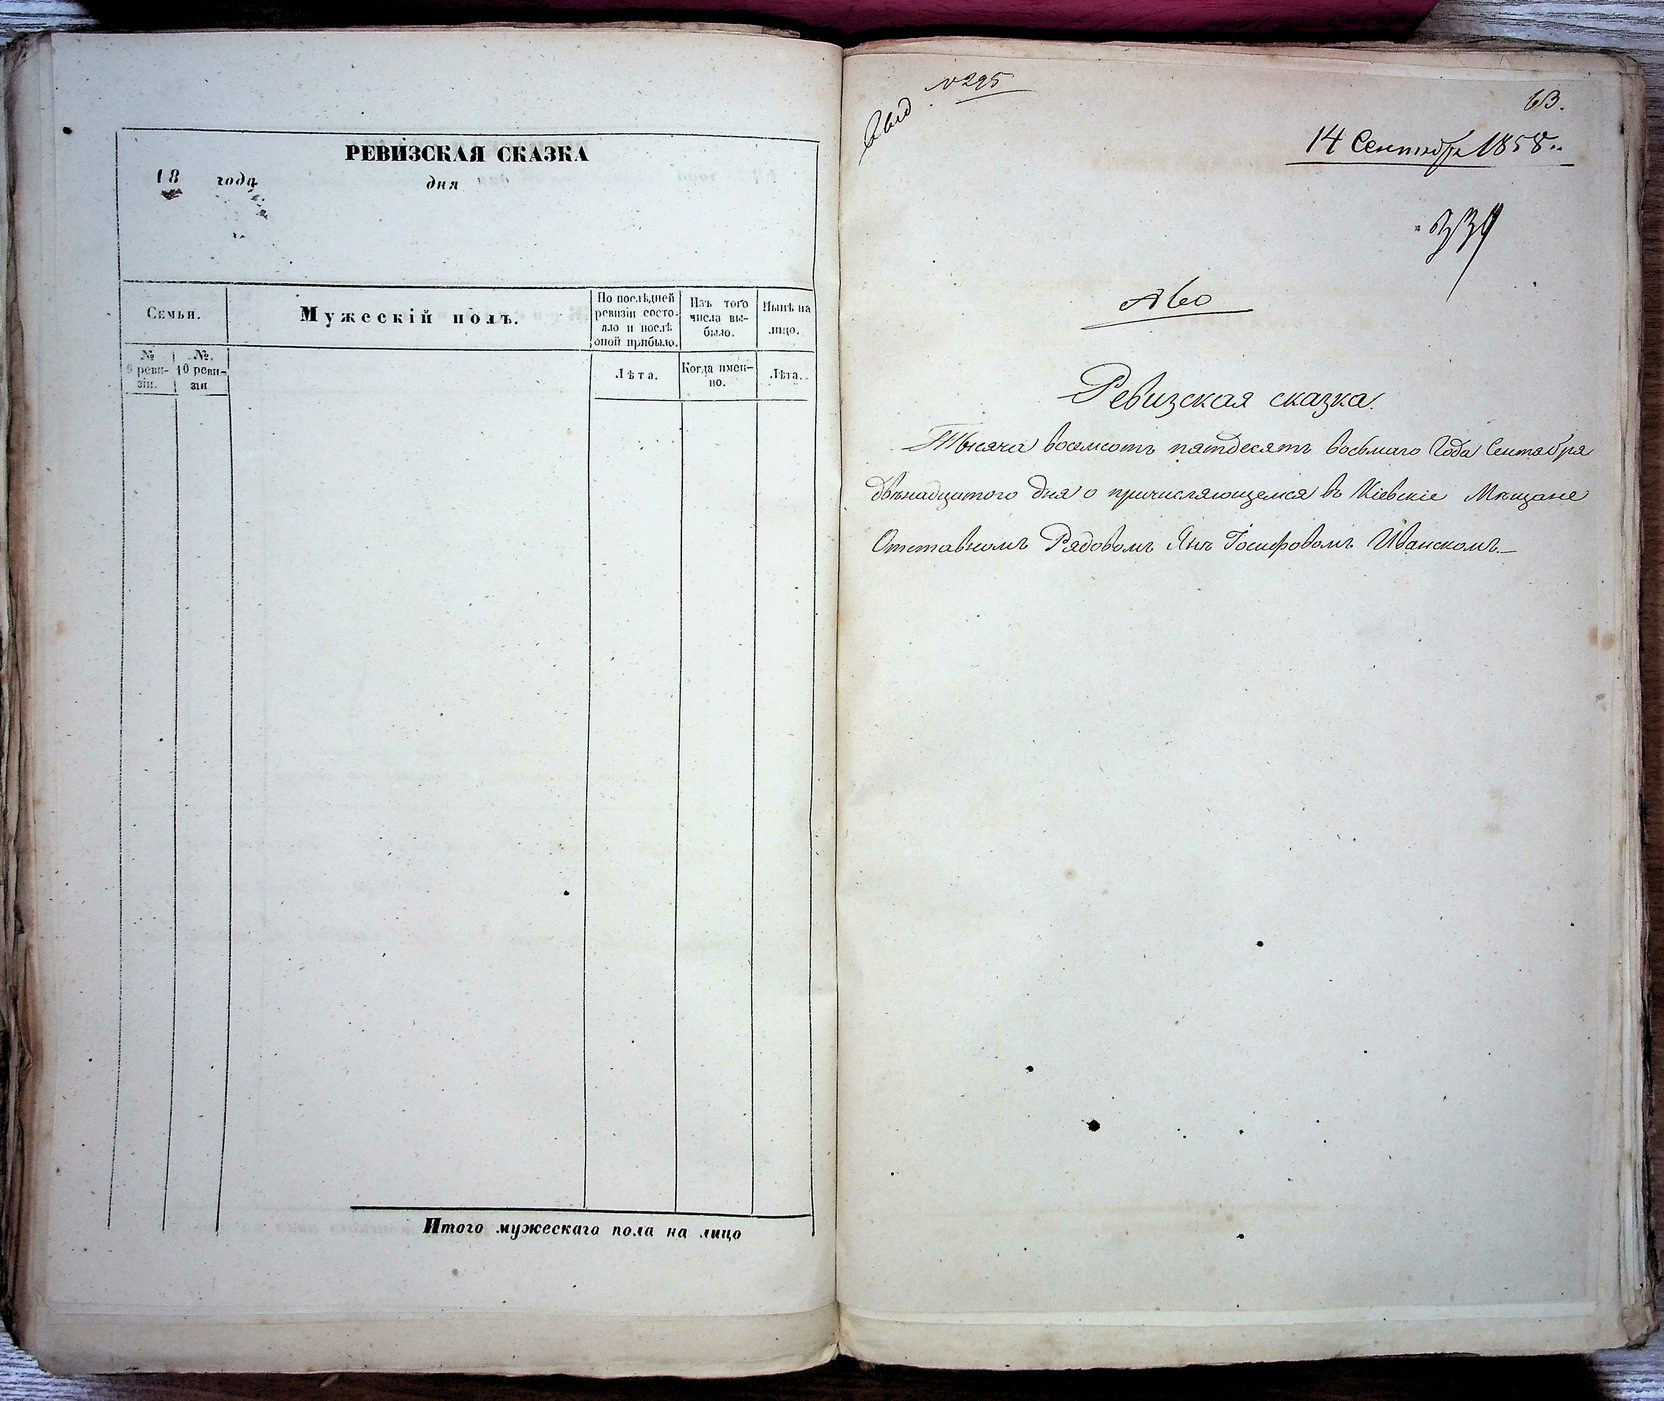 РЕВИЗСКАЯ СКАЗКА
18 года дня
Семьи.
Мужескій полъ.
По послѣдней ревизіи состояло и послѣ оной прибыло.
Изъ того числа выбыло.
Нынѣ на лицо.
№ 9 ревизіи.
№. 10 ревизіи
Лѣта.
Когда именно.
Лѣта.
Итого мужескаго пола на лицо
№ 295
63.
14 Сентября 1858.
Ревизская сказка.
Тысяча восемсотъ пятдесятъ восьмаго Года Сентября
двѣнадцатого дня о причисляющемся въ Кіевскіе Мѣщане
Отставномъ Рядовомъ Янѣ Іосифовомъ Иванскомъ